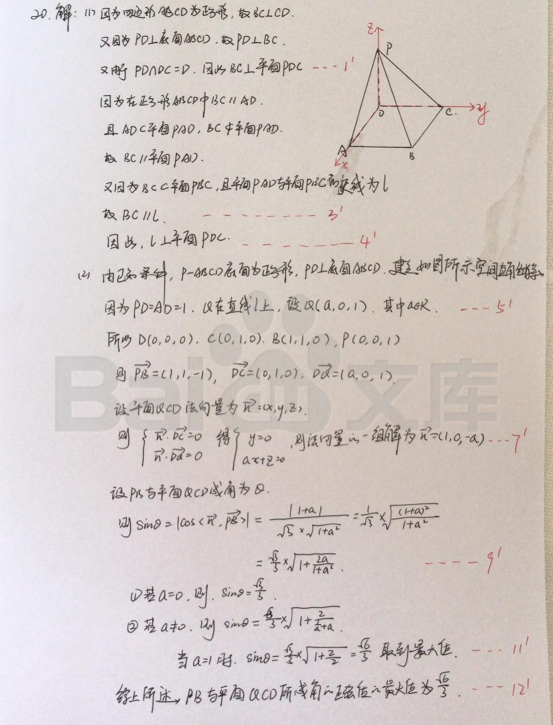 20. 解: (1) 因为四边形ABCD为正方形, 故BC⊥CD.
又因为PD⊥底面ABCD. 故PD⊥BC.
PD∩DC=D. 因此BC⊥平面PDC ---1'
因为在正方形ABCD中BC∥AD.
且AD⊂平面PAD, BC⊄平面PAD.
故BC∥平面PAD.
又因为BC⊂平面PBC, 且平面PAD与平面PBC的交线为l
故BC∥l. ------- 3'
因此, l⊥平面PDC. ------ 4'
z
P
D
C
y
A
x
B
(2) 由已知条件, P-ABCD底面为正方形, PD⊥底面ABCD. 建立如图所示空间直角坐标系
因为PD=AD=1. Q在直线l上, 设Q(a,0,1). 其中a∈R. ---5'
所以D(0,0,0). C(0,1,0). B(1,1,0). P(0,0,1)
则 PB→=(1,1,-1), DC→=(0,1,0). DQ→=(a,0,1).
设平面QCD法向量为 n→=(x,y,z).
则 { n→·DC→=0 n→·DQ→=0 得 { y=0 ax+z=0 , 则法向量的一组解为 n→=(1,0,-a)---7'
设PB与平面QCD成角为θ.
则 sinθ=|cos<n→,PB→>| = |1+a|/(√3×√(1+a²)) = 1/√3×√((1+a)²/(1+a²))
= √3/3×√(1+2a/(1+a²)). ----9'
①若a=0, 则. sinθ=√3/3.
②若a≠0. 则 sinθ=√3/3×√(1+2/(1/a+a)).
当a=1时. sinθ=√3/3×√(1+2/2)=√6/3 取到最大值. ---11'
综上所述, PB与平面QCD所成角的正弦值的最大值为√6/3. ---12'
Bai 文库